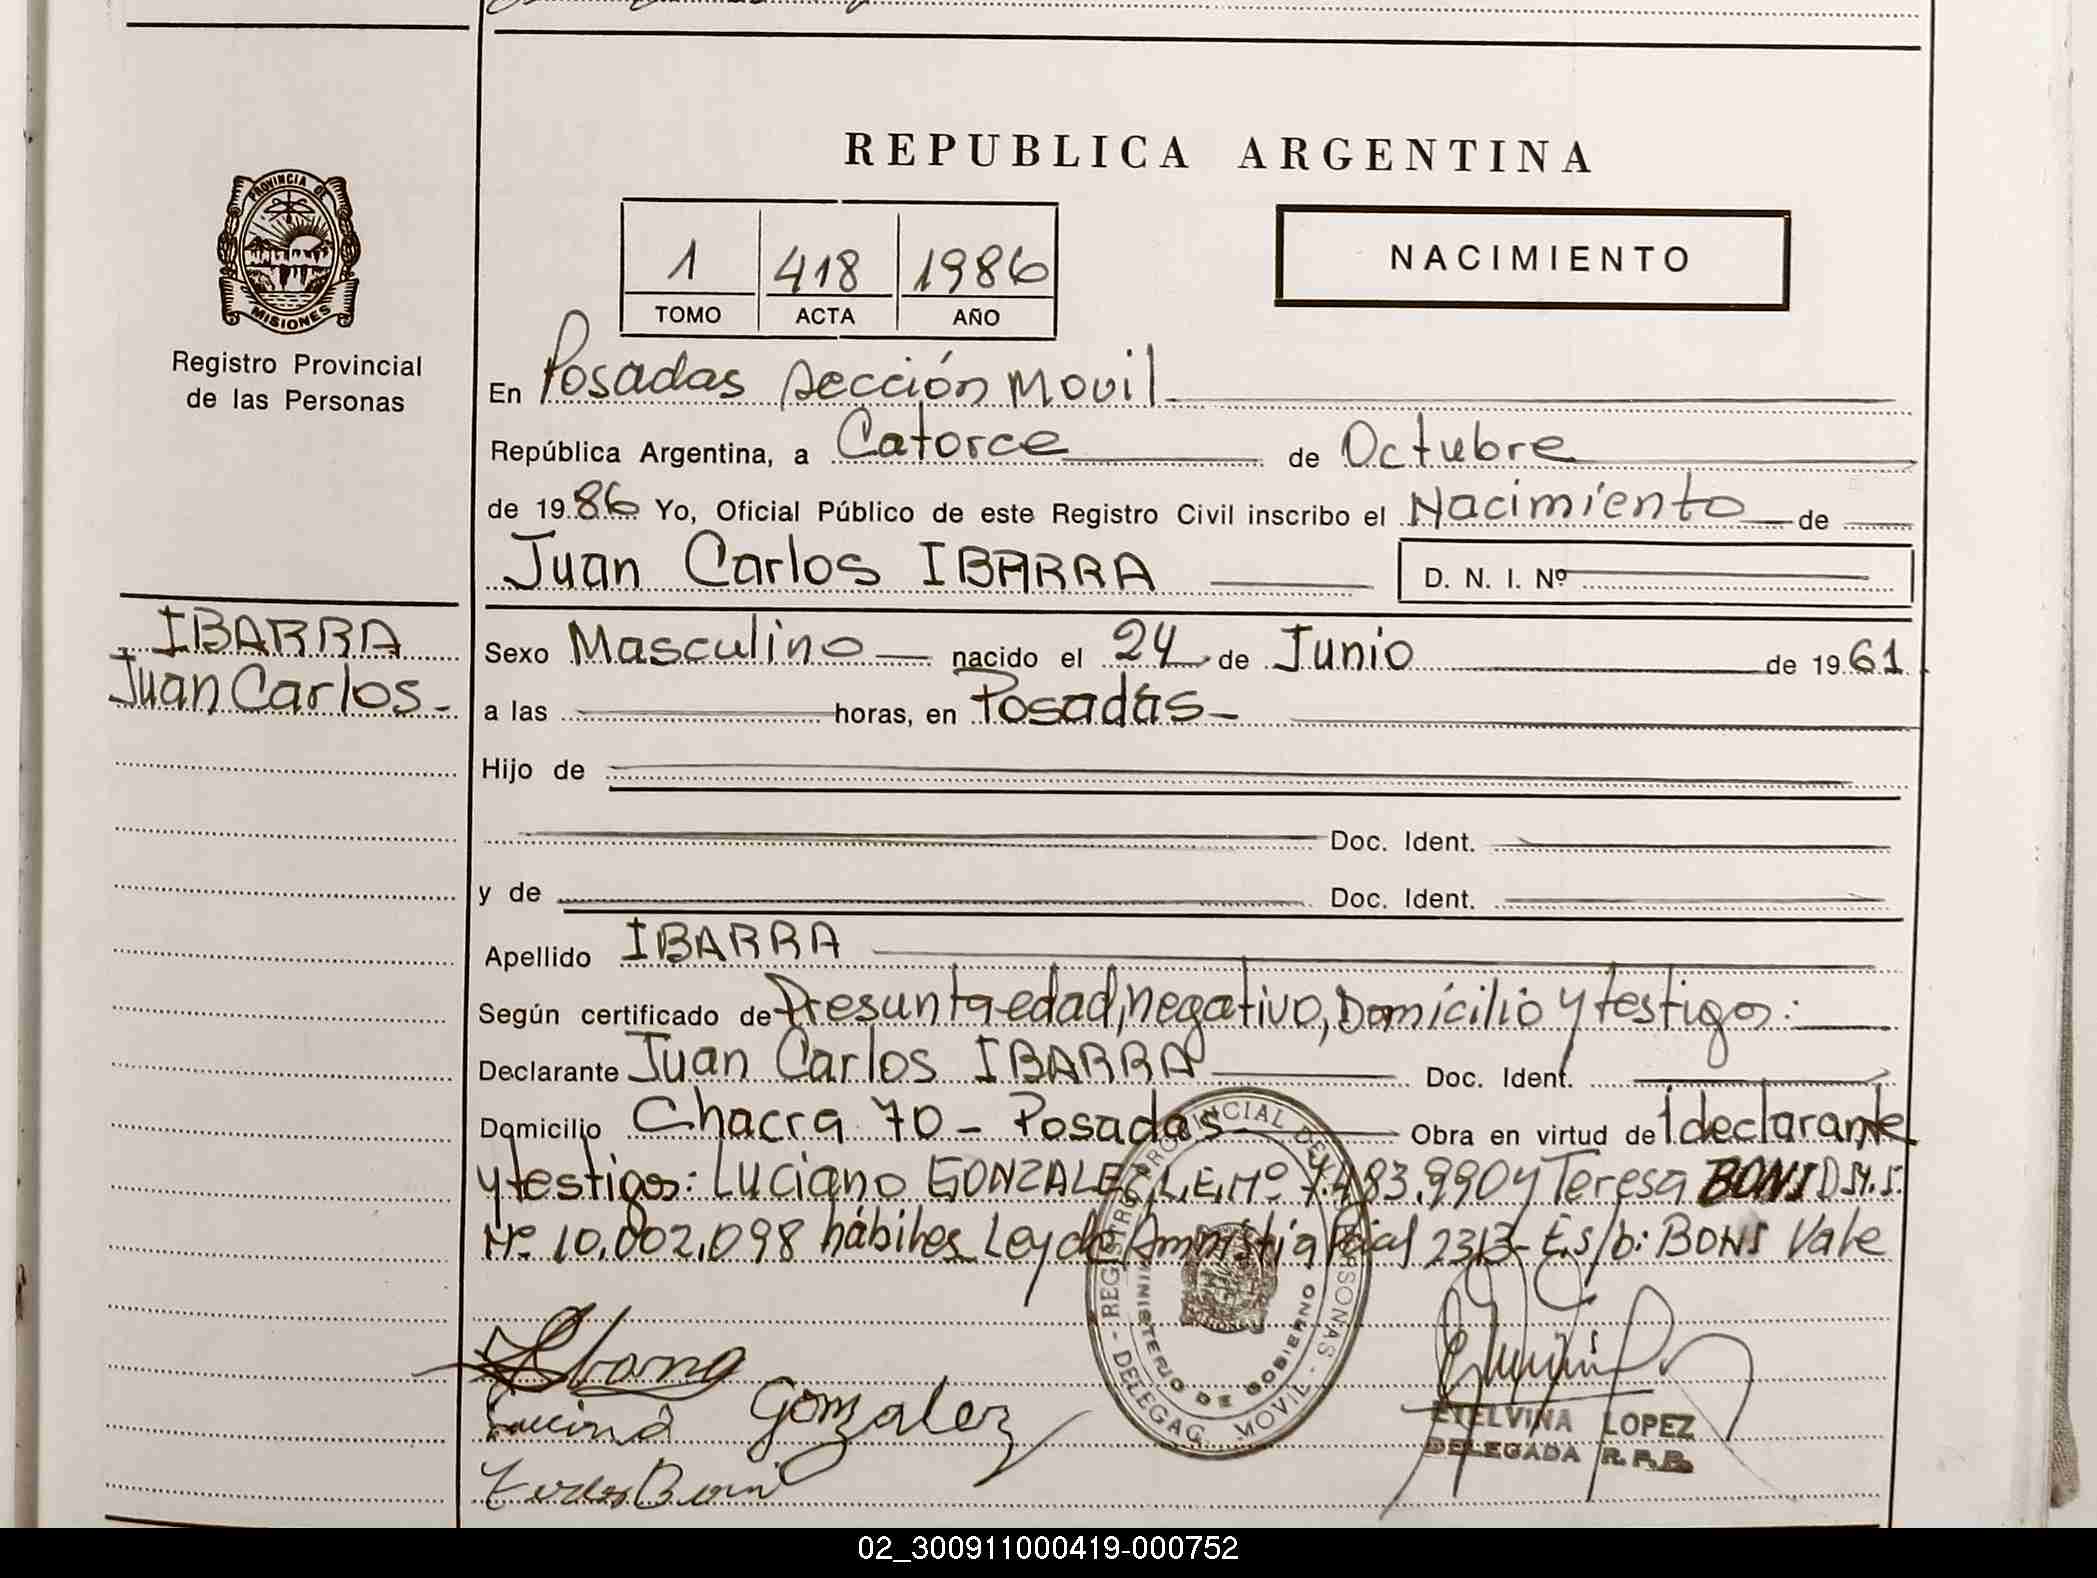 REPUBLICA ARGENTINA
PROVINCIA DE
MISIONES
Registro Provincial
de las Personas
1 418 1986
TOMO ACTA AÑO
NACIMIENTO
En Posadas sección Movil
República Argentina, a Catorce de Octubre
de 1986 Yo, Oficial Público de este Registro Civil inscribo el Nacimiento de
Juan Carlos IBARRA D. N. I. Nº
IBARRA
Juan Carlos.
Sexo Masculino nacido el 24 de Junio de 1961
a las horas, en Posadas
Hijo de
Doc. Ident.
y de Doc. Ident.
Apellido IBARRA
Según certificado de Presunta edad, negativo, Domicilio y testigos:
Declarante Juan Carlos IBARRA Doc. Ident.
Domicilio Chacra 70 - Posadas Obra en virtud de 1 declarante
y testigos: Luciano GONZALEZ, L.E. Nº 7.483.990 y Teresa BONS
Nº 10.002.098 hábiles Ley de Amnistia 2313 - E.s/b: BONS Vale
REGISTRO PROVINCIAL DE LAS PERSONAS - DELEGAC. MOVIL -
MINISTERIO DE GOBIERNO
Gonzalez
ETELVINA LOPEZ
DELEGADA R.P.P.
02_300911000419-000752